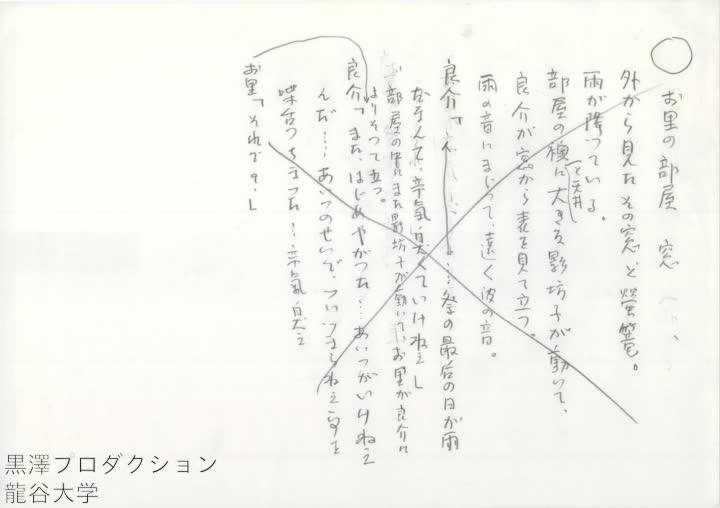 お里の部屋 窓
外から見たその窓と螢籠。
雨が降っている。
部屋の襖と天井に大きな影坊子が動いて、
良介が窓から表を見て立つ。
雨の音にまじって、遠く波の音。
良介「 ……祭の最后の日が雨
なんて、辛氣臭くていけねえ」
部屋の中にまた影坊子が動いて、お里が良介に
よりそって立つ。
良介「また、はじめやがった…あいつがいけねえ
んだ……あいつのせいで、つい、つまらねえ事を
喋舌っちまった…辛氣臭え
お里「それで？」
黒澤プロダクション
龍谷大学